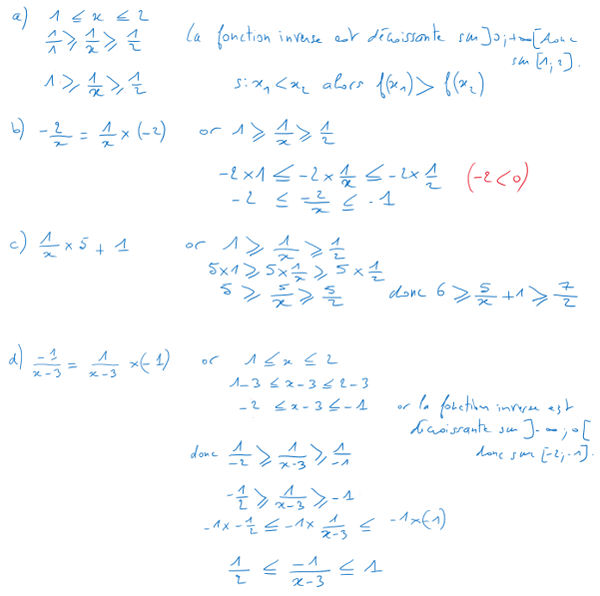 a) 1 ≤ x ≤ 2
1/1 ≥ 1/x ≥ 1/2 La fonction inverse est décroissante sur ]0;+∞[ donc
sur [1;2].
1 ≥ 1/x ≥ 1/2 si x₁ < x₂ alors f(x₁) > f(x₂)
b) -2/x = 1/x × (-2) or 1 ≥ 1/x ≥ 1/2
-2×1 ≤ -2×1/x ≤ -2×1/2 (-2<0)
-2 ≤ -2/x ≤ -1
c) 1/x × 5 + 1 or 1 ≥ 1/x ≥ 1/2
5×1 ≥ 5×1/x ≥ 5×1/2
5 ≥ 5/x ≥ 5/2 donc 6 ≥ 5/x + 1 ≥ 7/2
d) -1/(x-3) = 1/(x-3) ×(-1) or 1 ≤ x ≤ 2
1-3 ≤ x-3 ≤ 2-3
-2 ≤ x-3 ≤ -1 or la fonction inverse est
décroissante sur ]-∞;0[
donc sur [-2;-1].
donc 1/-2 ≥ 1/(x-3) ≥ 1/-1
-1/2 ≥ 1/(x-3) ≥ -1
-1×-1/2 ≤ -1× 1/(x-3) ≤ -1×(-1)
1/2 ≤ -1/(x-3) ≤ 1